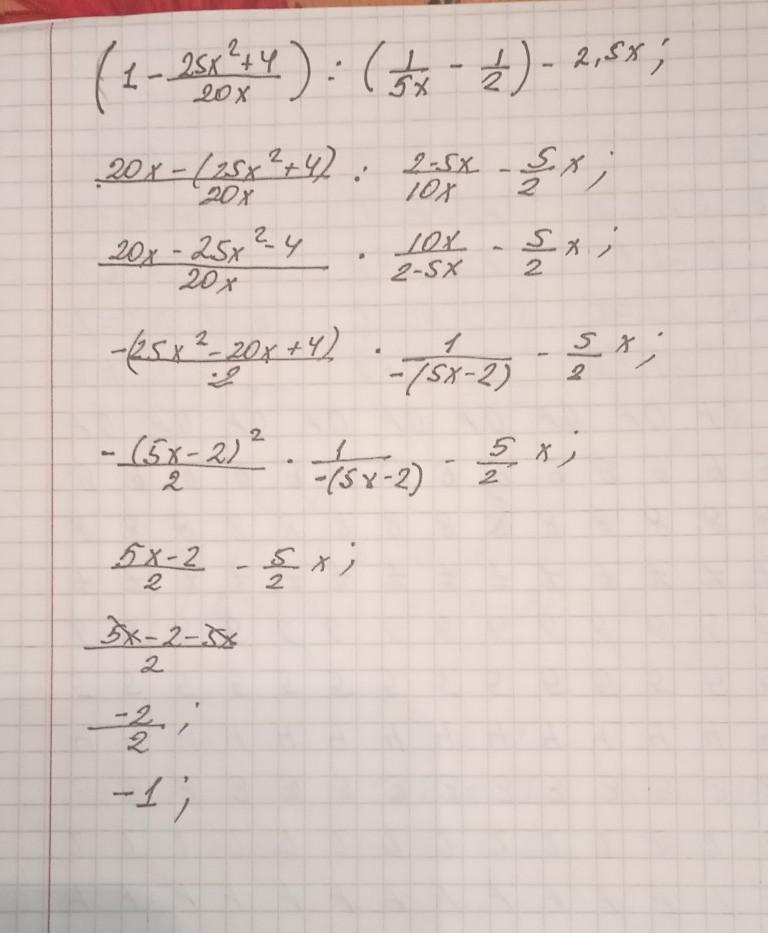 (1 - (25x²+4)/(20x)) : (1/(5x) - 1/2) - 2,5x;
(20x-(25x²+4))/(20x) : (2-5x)/(10x) - 5/2 x;
(20x-25x²-4)/(20x) · (10x)/(2-5x) - 5/2 x;
-(25x²-20x+4)/2 · 1/(-(5x-2)) - 5/2 x;
-(5x-2)²/2 · 1/(-(5x-2)) - 5/2 x;
(5x-2)/2 - 5/2 x;
(5x-2-5x)/2
-2/2;
-1;